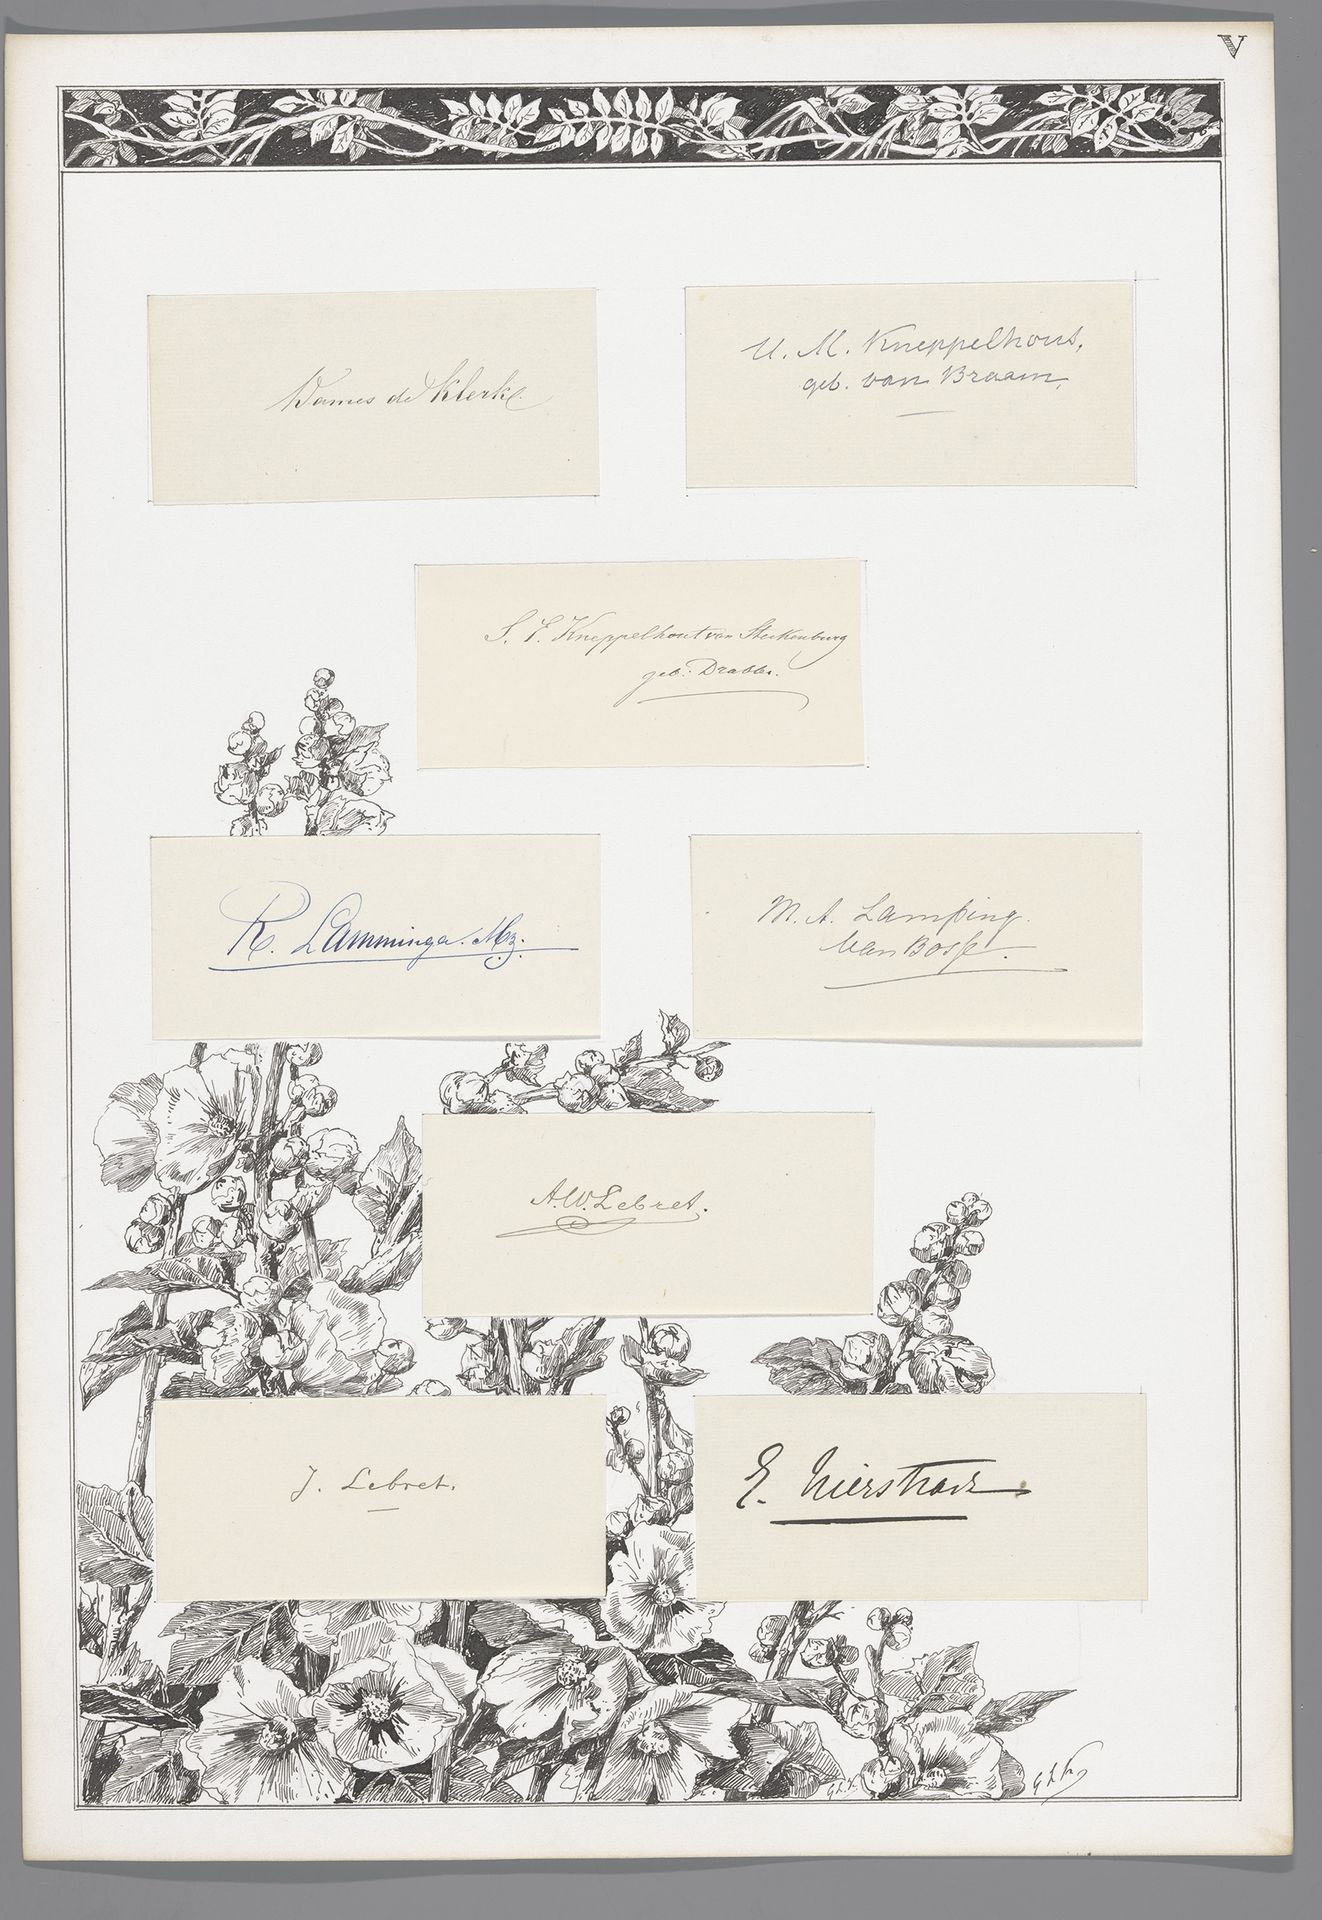 V
Dames de Klerk.
U. M. Kneppelhout,
geb. van Braam,
S. E. Kneppelhout van Sterkenburg
geb: Drabbe.
R. Lamminga. Mz.
M. A. Lamping.
Van Bosse.
A. W. Lebret.
J. Lebret.
E. Nierstrasz